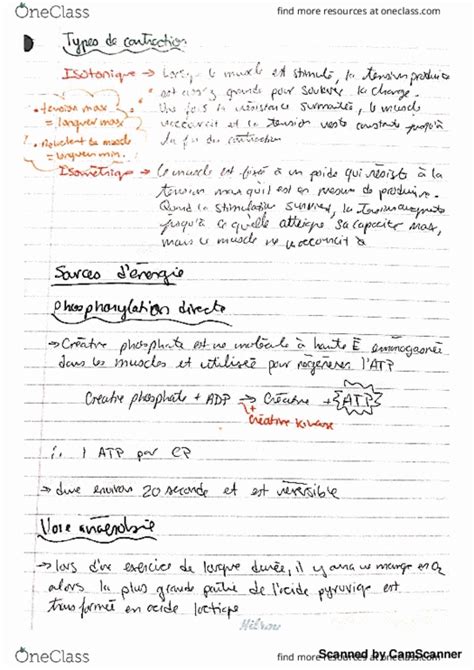 OneClass
find more resources at oneclass.com
Types de contraction
Isotonique → Lorsque le muscle est stimulé, la tension produite
est assez grande pour soulever la charge.
Une fois la résistance surmontée, le muscle
raccourcit et la tension reste constante jusqu'à
la fin de contraction
• tension max
= longueur max
• du muscle
= longueur min.
Isométrique → Le muscle est fixé à un poids qui résiste à la
tension max qu'il est en mesure de produire.
Quand la stimulation survient, la tension augmente
jusqu'à ce qu'elle atteigne sa capacité max,
mais le muscle ne raccourcit
Sources d'énergie
Phosphorylation directe
→ Créatine phosphate est une molécule à haute E emmagasinée
dans les muscles et utilisée pour régénérer l'ATP
Créatine phosphate + ADP → Créatine + ATP
Créatine kinase
1 ATP par CP
→ dure environ 20 seconde et est réversible
Voie anaérobie
→ Lors d'un exercice de longue durée, il y a un manque en O2
alors la plus grande partie de l'acide pyruvique est
transformée en acide lactique
Hilroy
Scanned by CamScanner
OneClass
find more resources at oneclass.com